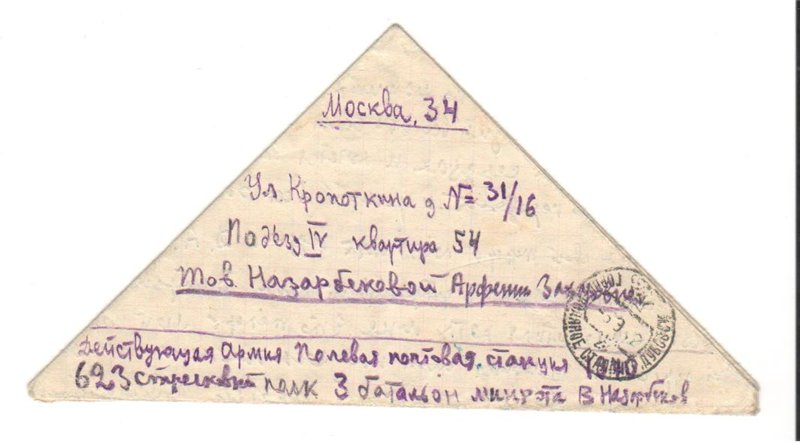 Москва, 34
Ул. Кропоткина д № 31/16
Подъезд IV квартира 54
тов. Назарбековой Арфении
Действующая Армия Полевая почтовая станция
623 стрелковый полк 3 батальон минрота В Назарбеков